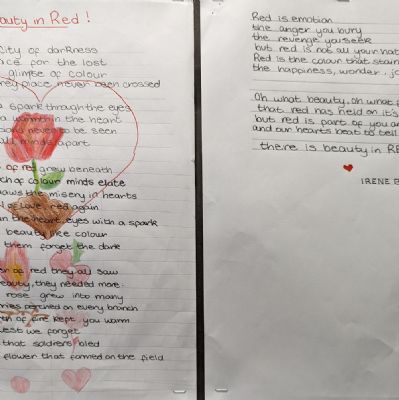 auty in Red !
City of darkness
ce for the lost
glimpse of colour
ey place never been crossed
a spark through the eyes
a warmth in the heart
never to be seen
minds apart
of red grew beneath
ch of colour minds elate
the misery in hearts
of love, red again
in the heart, eyes with a spark
beauty like colour
them forget the dark
er of red they all saw
eauty, they needed more.
rose grew into many
perched on every branch
th of fire kept you warm
est we forget
that soldiers bled
flower that formed on the field
Red is emotion
the anger you bury
the revenge you seek
but red is not all your hat
Red is the colour that stain
the happiness, wonder, jo
Oh what beauty, oh what
that red has held on it's
but red is part of you an
and our hearts beat to tell
there is beauty in RE
IRENE